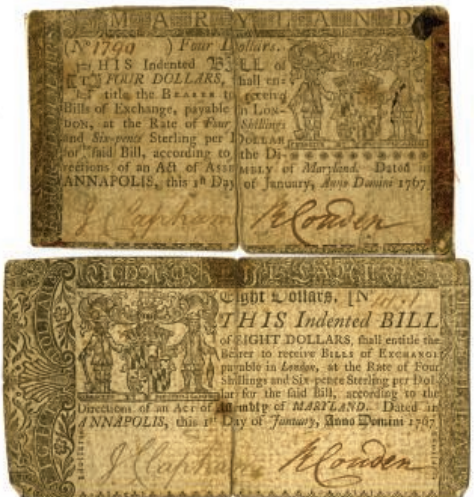 MARYLAND
(No 1790 ) Four Dollars.
THIS Indented BILL of
FOUR DOLLARS, shall en-
title the BEARER to receive
Bills of Exchange, payable in LON-
DON, at the Rate of Four Shillings
and Six-pence Sterling per DOLLAR
for said Bill, according to the Di-
rections of an Act of ASSEMBLY of Maryland. Dated in
ANNAPOLIS, this 1st Day of January, Anno Domini 1767
J Clapham R Couden
Eight Dollars. [N
THIS Indented BILL
of EIGHT DOLLARS, shall entitle the
Bearer to receive BILLS of EXCHANGE
payable in London, at the Rate of Four
Shillings and Six-pence Sterling per Dol-
lar for the said Bill, according to the
Directions of an Act of Assembly of MARYLAND. Dated in
ANNAPOLIS, this 1st Day of January, Anno Domini 1767
J Clapham R Couden